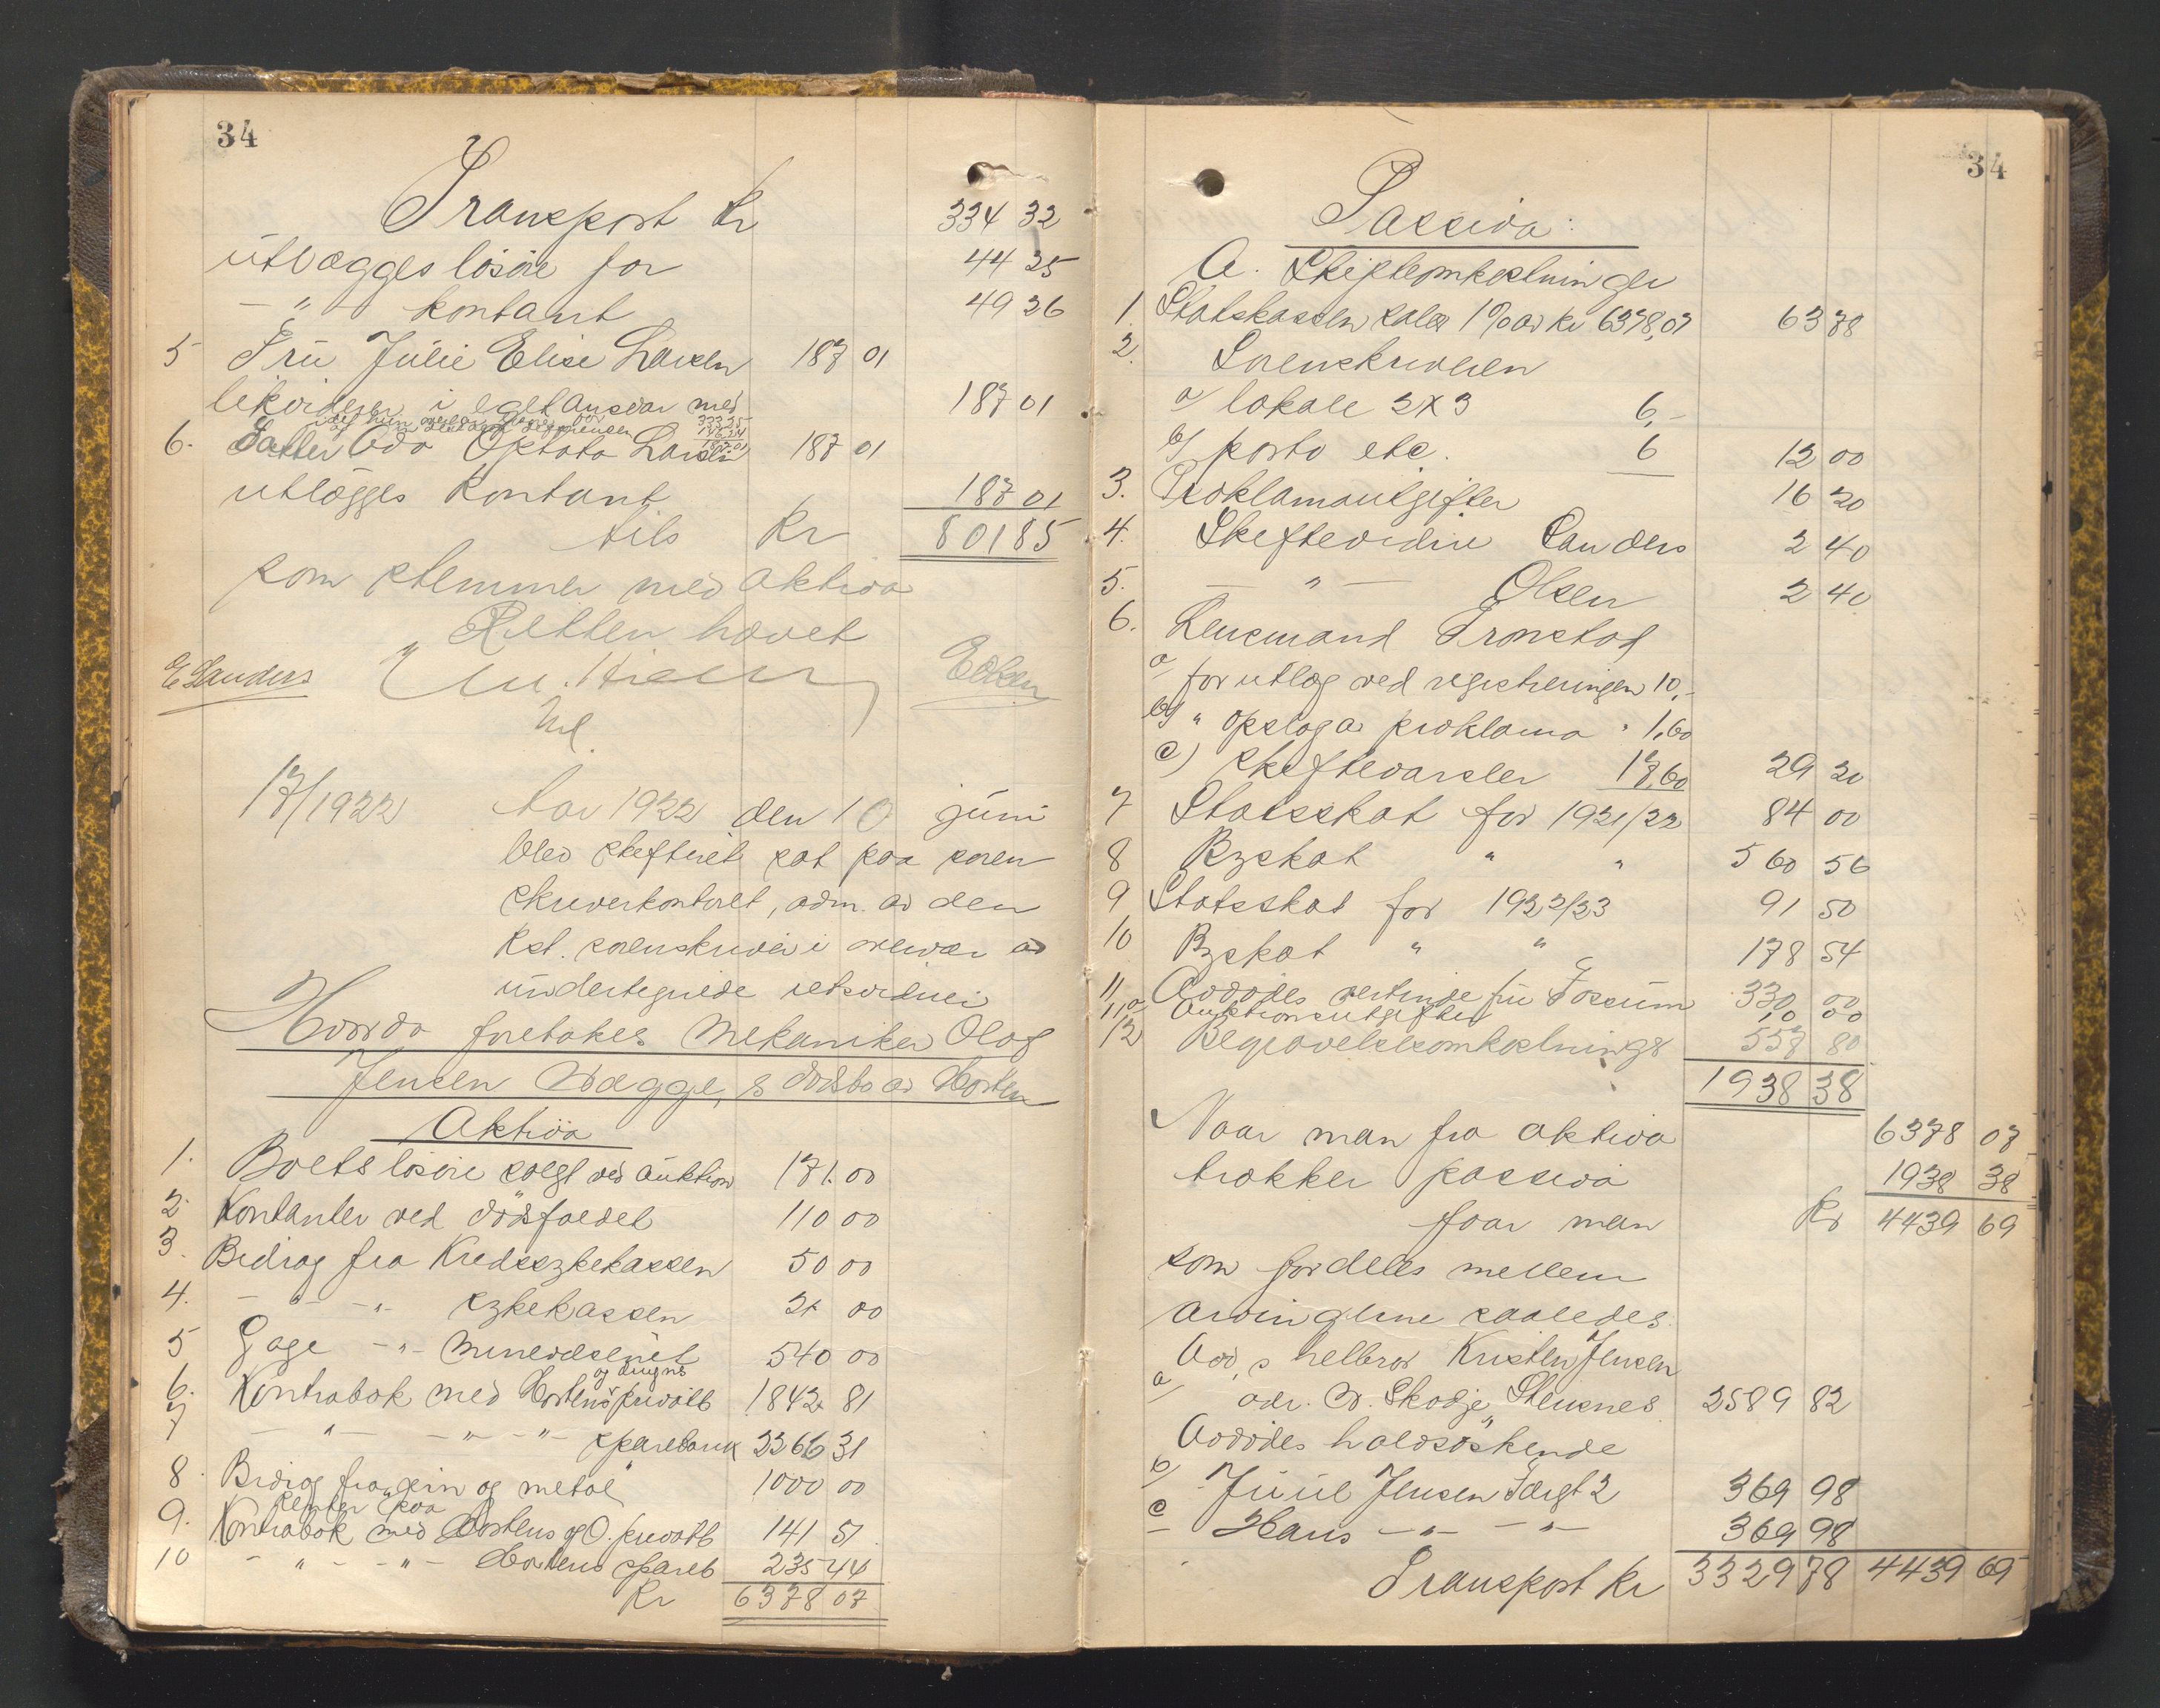 34
Transport kr 334 32
utlægges lösöre for 44 25
— " — kontant 49 26
5 Fru Julie Elise Larsen 187 01
i eget ansvar med 187 01
6. Datter Oda Larsen 187 01
utlægges kontant 187 01
tils kr 801 85
som stemmer med aktiva
Retten hævet
E Sanders EOlsen
17/1922 Aar 1922 den 10 juni
blev skifteret sat paa soren
skriverkontoret, adm. av den
kst. sorenskriver i nærvær av
undertegnede retsvidner
Hvorda foretokes mekaniker Olaf
Jensen Vægge,s dödsbo av Horten
Aktiva
1. Boets lösöre solgt ved auktion 171.00
2. Kontanter ved dödsfaldet 110 00
3. Bidrag fra Kredssykekassen 50 00
4. — " — " — sykekassen 21 00
5 Gage — " — minevæsenet 540 00
og omegns
6. Kontrabok med Hortens privatb 1842 81
7 — " — — " — " — sparebank 2266 31
8. Bidrag fra "Jern og metal" 1000 00
Renter paa
9. Kontrabok med Hortens og O. privatb 141 51
10 — " — — " — Hortens spareb 235 44
Kr 6378 07
34
Passiva:
A. Skifteomkostninger
1. Statskassen sales 1% av kr 6378,07 63 78
2. Sorenskriveren
a/ lokale 2x3 6,-
b/ porto etc. 6 12 00
3. Proklamautgifter 16 20
4. Skiftevidne Sanders 2 40
5. — " — Olsen 2 40
6. Lensmand Tronstad
a/ for utlæg ved registreringen 10,-
b/ " opslag av proklama " 1,60
c) skiftevarsler 17,60 29 20
7 Statsskat for 1921/22 84 00
8 Byskat " " 560 56
9 Statsskat for 1922/23 91 50
10 Byskat " " 178 54
11 Avdödes vertinde fru Fossum 330 00
11a Auktionsutgifter 10 00
12 Begravelsesomkostninger 557 80
1938 38
Naar man fra aktiva 6378 07
trækker passiva 1938 38
faar man Kr 4439 69
som fordeles mellem
arvingerne saaledes.
Avd,s helbror Kristen Jensen
a/ adr. Skodje, Stensnes 2589 82
Avdödes halvsöskende
b/ Juul Jensen Færgt 2 369 98
c Hans — " — — " — 369 98
Transport kr 3329 78 4439 69